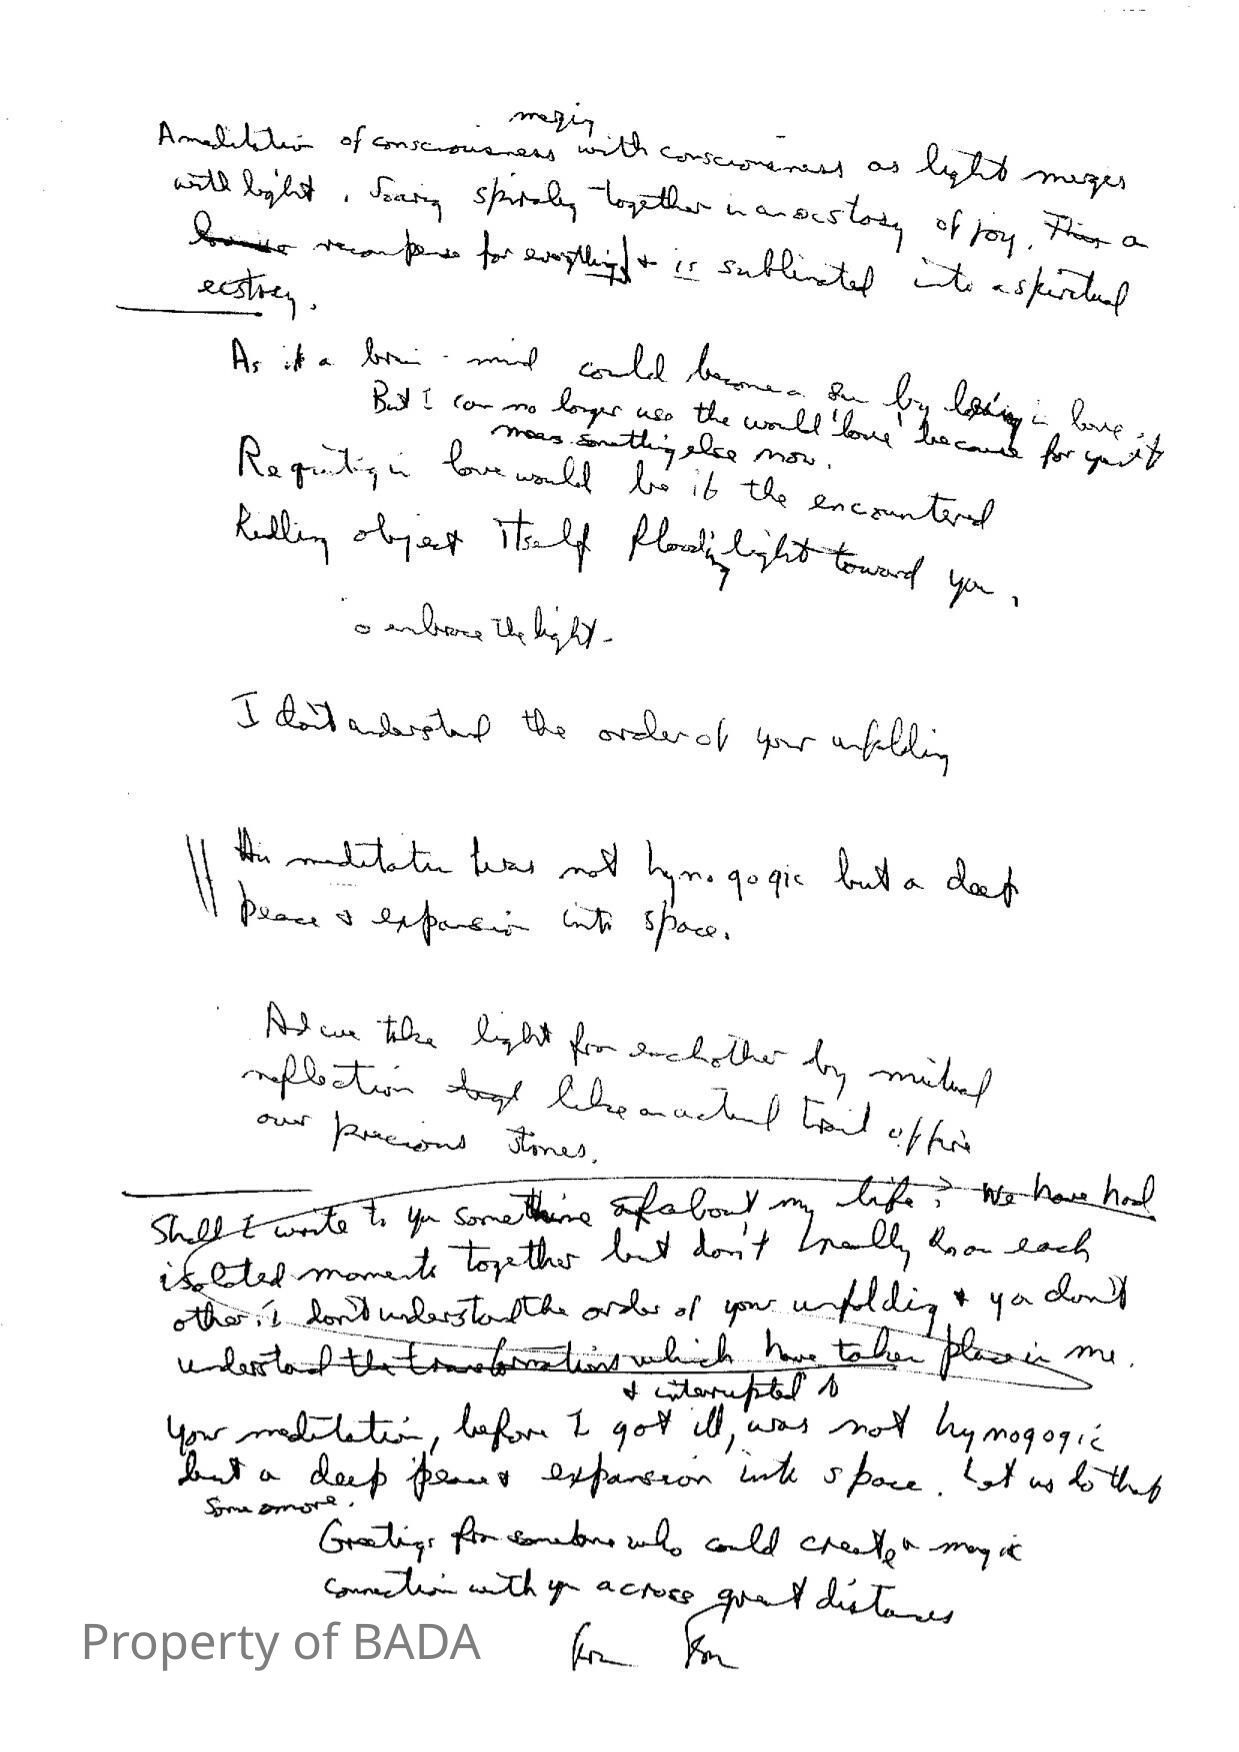 merging
A meditation of consciousness with consciousness as light merges
with light. Soaring spiraling together in an ecstasy of joy. This a
recompense for everything & is sublimated into a spiritual
ecstasy.
As if a brain-mind could become a Sun by in love.
But I can no longer use the would 'love' because for you it
means something else now.
Requiting in love would be if the encountered
object itself flooding light toward you.
o embrace the light.
I don't understand the order of your unfolding
meditation was not hynogogic but a deep
peace & expansion into space.
And we take light from each other by mutual
reflection like an actual trail of fire
our precious stones.
Shall I write to you something of about my life? We have had
isolated moments together but don't really know each
other. I don't understand the order of your unfolding & you don't
understand the transformations which have taken place in me.
& interrupted
Your meditation, before I got ill, was not hynogogic
but a deep peace & expansion into space. Let us do that
some more.
Greetings from someone who could create a magic
connection with you across great distances
from
Property of BADA